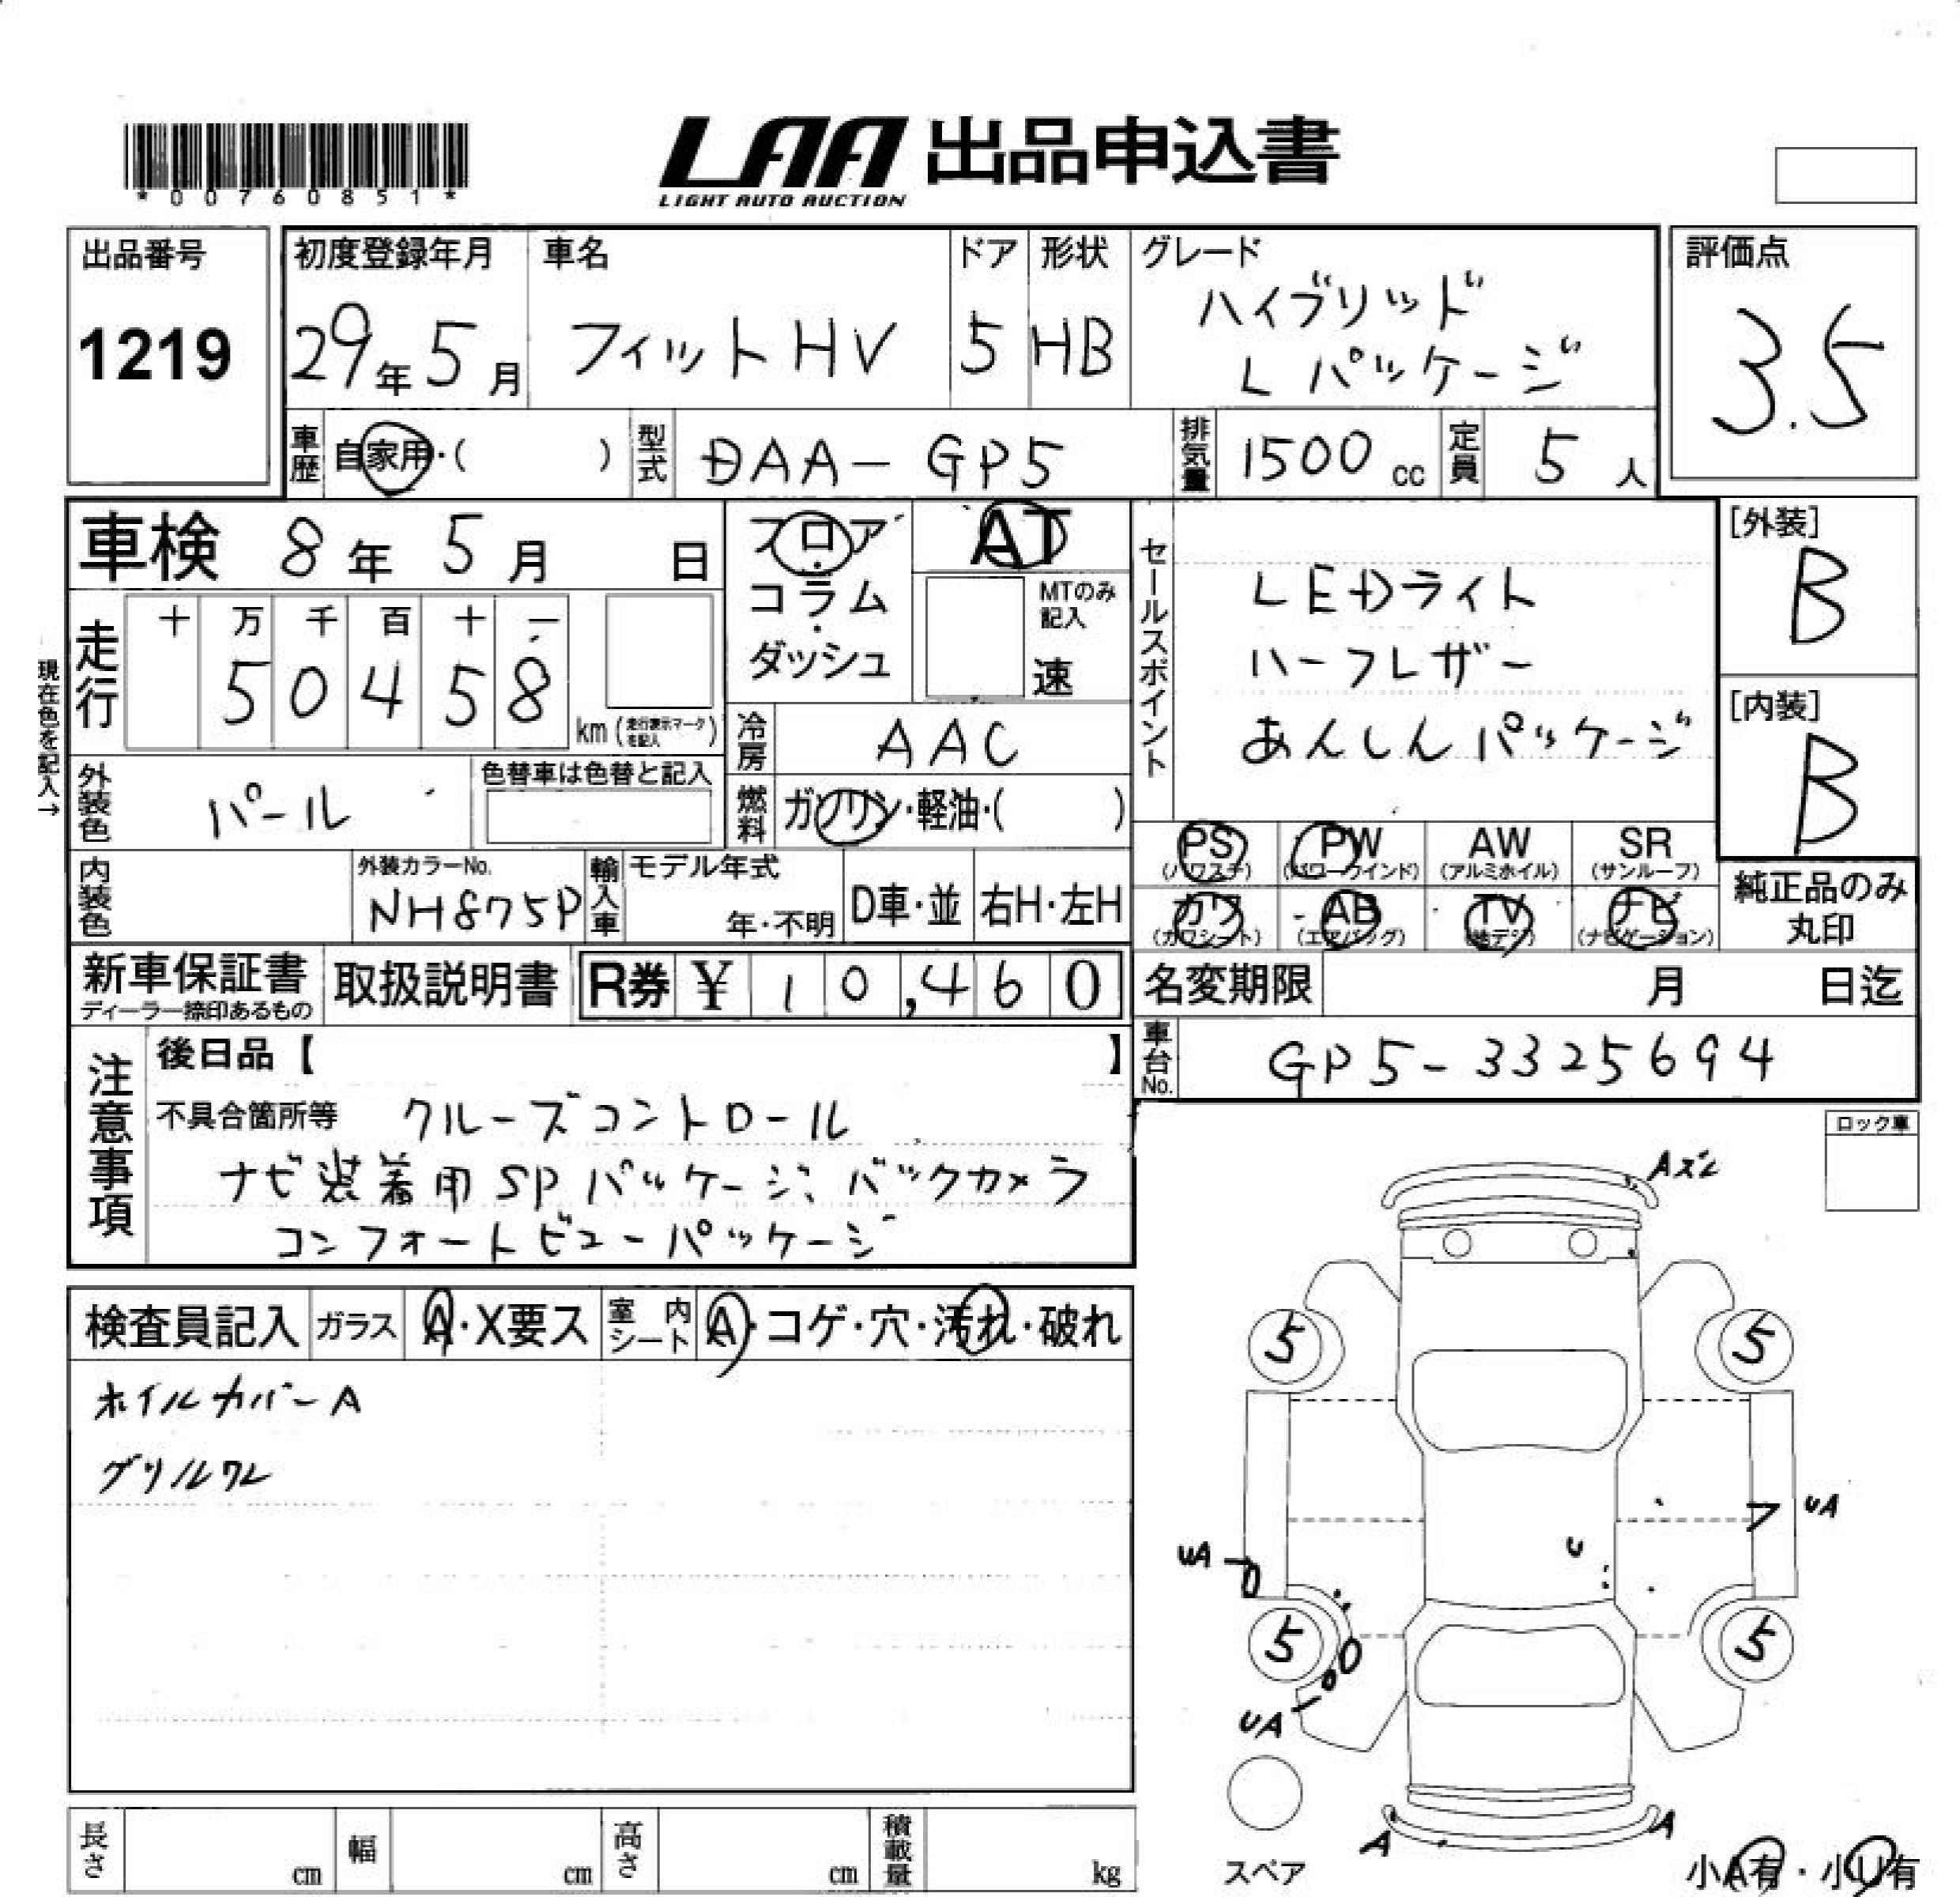 *00760851*
LAA 出品申込書
LIGHT AUTO AUCTION
出品番号
1219
初度登録年月
29年5月
車名
フィットHV
ドア
5
形状
HB
グレード
ハイブリッド
Lパッケージ
評価点
3.5
車歴 自家用・( )
型式 DAA-GP5
排気量 1500cc
定員 5人
車検 8年5月 日
フロア・
コラム・
ダッシュ
AT
MTのみ
記入
速
セールスポイント
LEDライト
ハーフレザー
あんしんパッケージ
[外装]
B
[内装]
B
現在色を記入→
走行
十 万 千 百 十 一
5 0 4 5 8
km(走行表示マークを記入)
冷房 AAC
燃料 ガソリン・軽油・( )
外装色 パール
色替車は色替と記入
内装色
外装カラーNo.
NH875P
輸入車
モデル年式
年・不明
D車・並
右H・左H
PS (パワステ)
PW (パワーウインド)
AW (アルミホイル)
SR (サンルーフ)
カワ (カワシート)
AB (エアバッグ)
TV (地デジ)
ナビ (ナビゲーション)
純正品のみ
丸印
新車保証書
ディーラー捺印あるもの
取扱説明書
R券 ¥ 10,460
名変期限 月 日迄
車台No. GP5-3325694
注意事項
後日品【 】
不具合箇所等 クルーズコントロール
ナビ装着用SPパッケージ、バックカメラ
コンフォートビューパッケージ
ロック車
検査員記入
ガラス A・X要ス
室内シート A・コゲ・穴・汚れ・破れ
ホイルカバーA
グリルワレ
Aズレ
5 5
UA
U
UA
5 5
UA
A A
スペア
小A有・小U有
長さ cm
幅 cm
高さ cm
積載量 kg